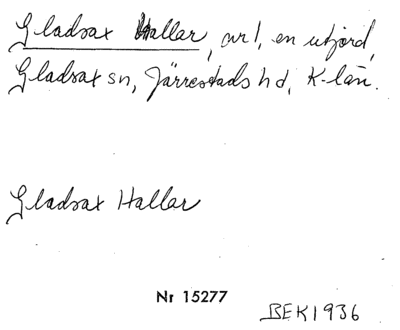 Gladsax Hallar, avl, en utjord,
Gladsax sn, Järrestads hd, K-län.
Gladsax Hallar
Nr 15277
BEK 1936